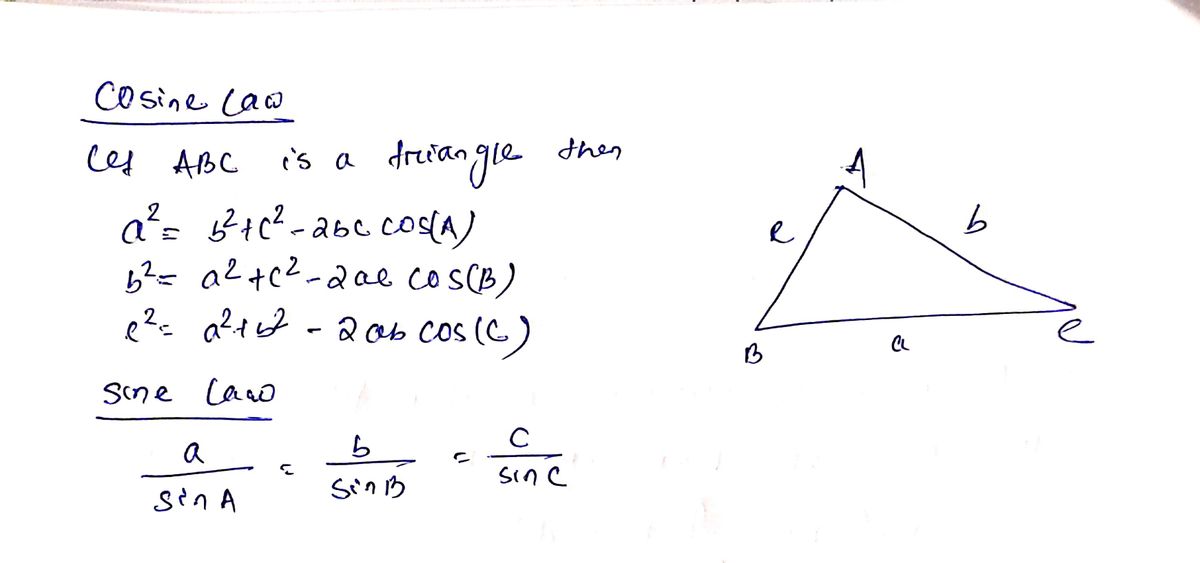 Cosine Law
Let ABC is a triangle then
a² = b²+c²-2bc cos(A)
b² = a²+c²-2ac cos(B)
c² = a²+b² - 2ab cos(C)
Sine Law
a/sin A = b/sin B = c/sin C
A
c
b
B
a
C